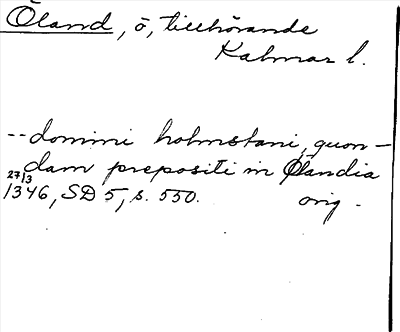 Öland, ö, tillhörande
Kalmar l.
-- domini holmstani, quon-
dam prepositi in Ølandia
27/3
1346, SD 5, s. 550. orig.